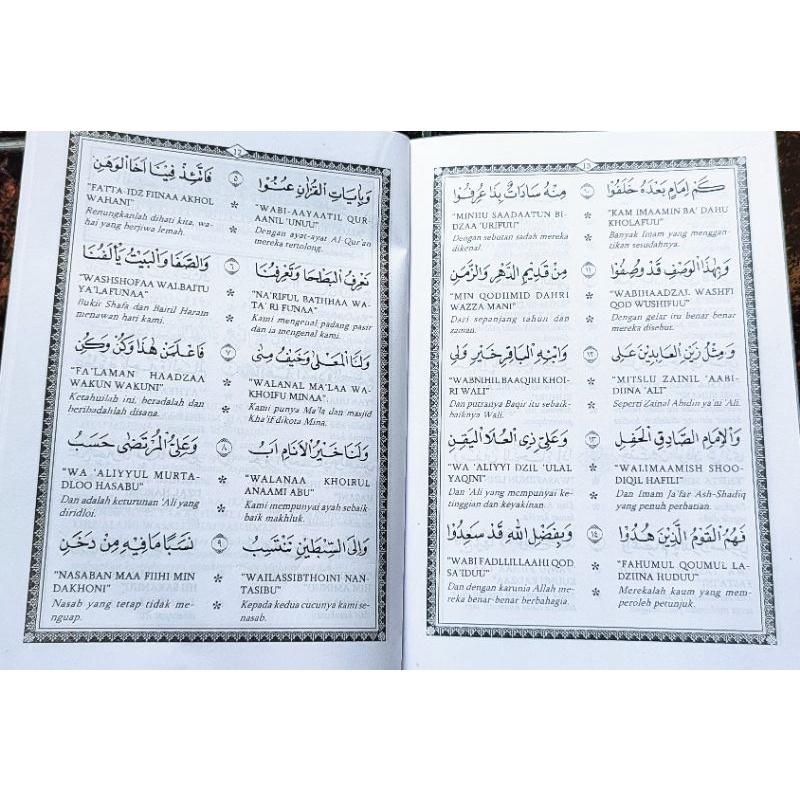 12
وَبِاٰيَاتِ الْقُرْاٰنِ عُنُوْا ٥ فَاتَّئِذْ فِيْنَا اَخَا الْوَهَنِ
"WABI-AAYAATIL QUR-
AANIL 'UNUU"
Dengan ayat-ayat Al-Qur'an
mereka tertolong.
"FATTA-IDZ FIINAA AKHOL
WAHANI"
Renungkanlah dihati kita, wa-
hai yang berjiwa lemah.
نَعْرِفُ الْبَطْحَا وَتَعْرِفُنَا ٦ وَالصَّفَا وَالْبَيْتُ يَأْلَفُنَا
"NA'RIFUL BATHHAA WA-
TA' RI FUNAA"
Kami mengenal padang pasir
dan ia mengenal kami.
"WASHSHOFAA WALBAITU
YA'LAFUNAA"
Bukit Shafa dan Baitil Haram
menawan hati kami.
وَلَنَا الْمَعْلَى وَخَيْفُ مِنَى ٧ فَاعْلَمَنْ هٰذَا وَكُنْ وَكُنِ
"WALANAL MA'LAA WA-
KHOIFU MINAA".
Kami punya Ma'la dan masjid
Kha'if dikota Mina.
"FA'LAMAN HAADZAA
WAKUN WAKUNI"
Ketahuilah ini, beradalah dan
beribadahlah disana.
وَلَنَا خَيْرُ الْاَنَامِ اَبُ ٨ وَعَلِيُّ الْمُرْتَضَى حَسَبُ
"WALANAA KHOIRUL
ANAAMI ABU"
Kami mempunyai ayah sebaik
baik makhluk.
"WA 'ALIYYUL MURTA-
DLOO HASABU"
Dan adalah keturunan 'Ali yang
diridloi.
وَاِلَى السِّبْطَيْنِ نَنْتَسِبُ ٩ نَسَبًا مَا فِيْهِ مِنْ دَخَنِ
"WAILASSIBTHOINI NAN-
TASIBU"
Kepada kedua cucunya kami se-
nasab.
"NASABAN MAA FIIHI MIN
DAKHONI"
Nasab yang tetap tidak me-
nguap.
13
كَمْ اِمَامٍ بَعْدَهُ خَلَفُوْا ١٠ مِنْهُ سَادَاتٌ بِذَا عُرِفُوْا
"KAM IMAAMIN BA' DAHU
KHOLAFUU"
Banyak Imam yang menggan-
tikan sesudahnya.
"MINHU SAADAATUN BI-
DZAA 'URIFUU"
Dengan sebutan sadah mereka
dikenal.
وَبِهٰذَا الْوَصْفِ قَدْ وُصِفُوْا ١١ مِنْ قَدِيْمِ الدَّهْرِ وَالزَّمَنِ
"WABIHAADZAL WASHFI
QOD WUSHIFUU"
Dengan gelar itu benar benar
mereka disebut.
"MIN QODIIMID DAHRI
WAZZA MANI"
Dari sepanjang tahun dan
zaman.
وَمِثْلُ زَيْنِ الْعَابِدِيْنَ عَلِى ١٢ وَابْنِهِ الْبَاقِرِ خَيْرِ وَلِى
"MITSLU ZAINIL 'AABI-
DIINA 'ALI"
Seperti Zainal Abidin ya'ni 'Ali.
"WABNIHIL BAAQIRI KHOI-
RI WALI"
Dan putranya Baqir itu sebaik-
baiknya Wali.
وَالْاِمَامِ الصَّادِقِ الْحَفِلِ ١٣ وَعَلِيٍّ ذِى الْعُلَا الْيَقِنِ
"WALIMAAMISH SHOO-
DIQIL HAFILI"
Dan Imam Ja'far Ash-Shadiq
yang penuh perhatian.
"WA 'ALIYYI DZIL 'ULAL
YAQINI"
Dan 'Ali yang mempunyai ke-
tinggian dan keyakinan.
فَهُمُ الْقَوْمُ الَّذِيْنَ هُدُوْا ١٤ وَبِفَضْلِ اللهِ قَدْ سَعِدُوْا
"FAHUMUL QOUMUL LA-
DZIINA HUDUU"
Merekalah kaum yang mem-
peroleh petunjuk.
"WABI FADLLILLAAHI QOD
SA'IDUU"
Dan dengan karunia Allah me-
reka benar-benar berbahagia.